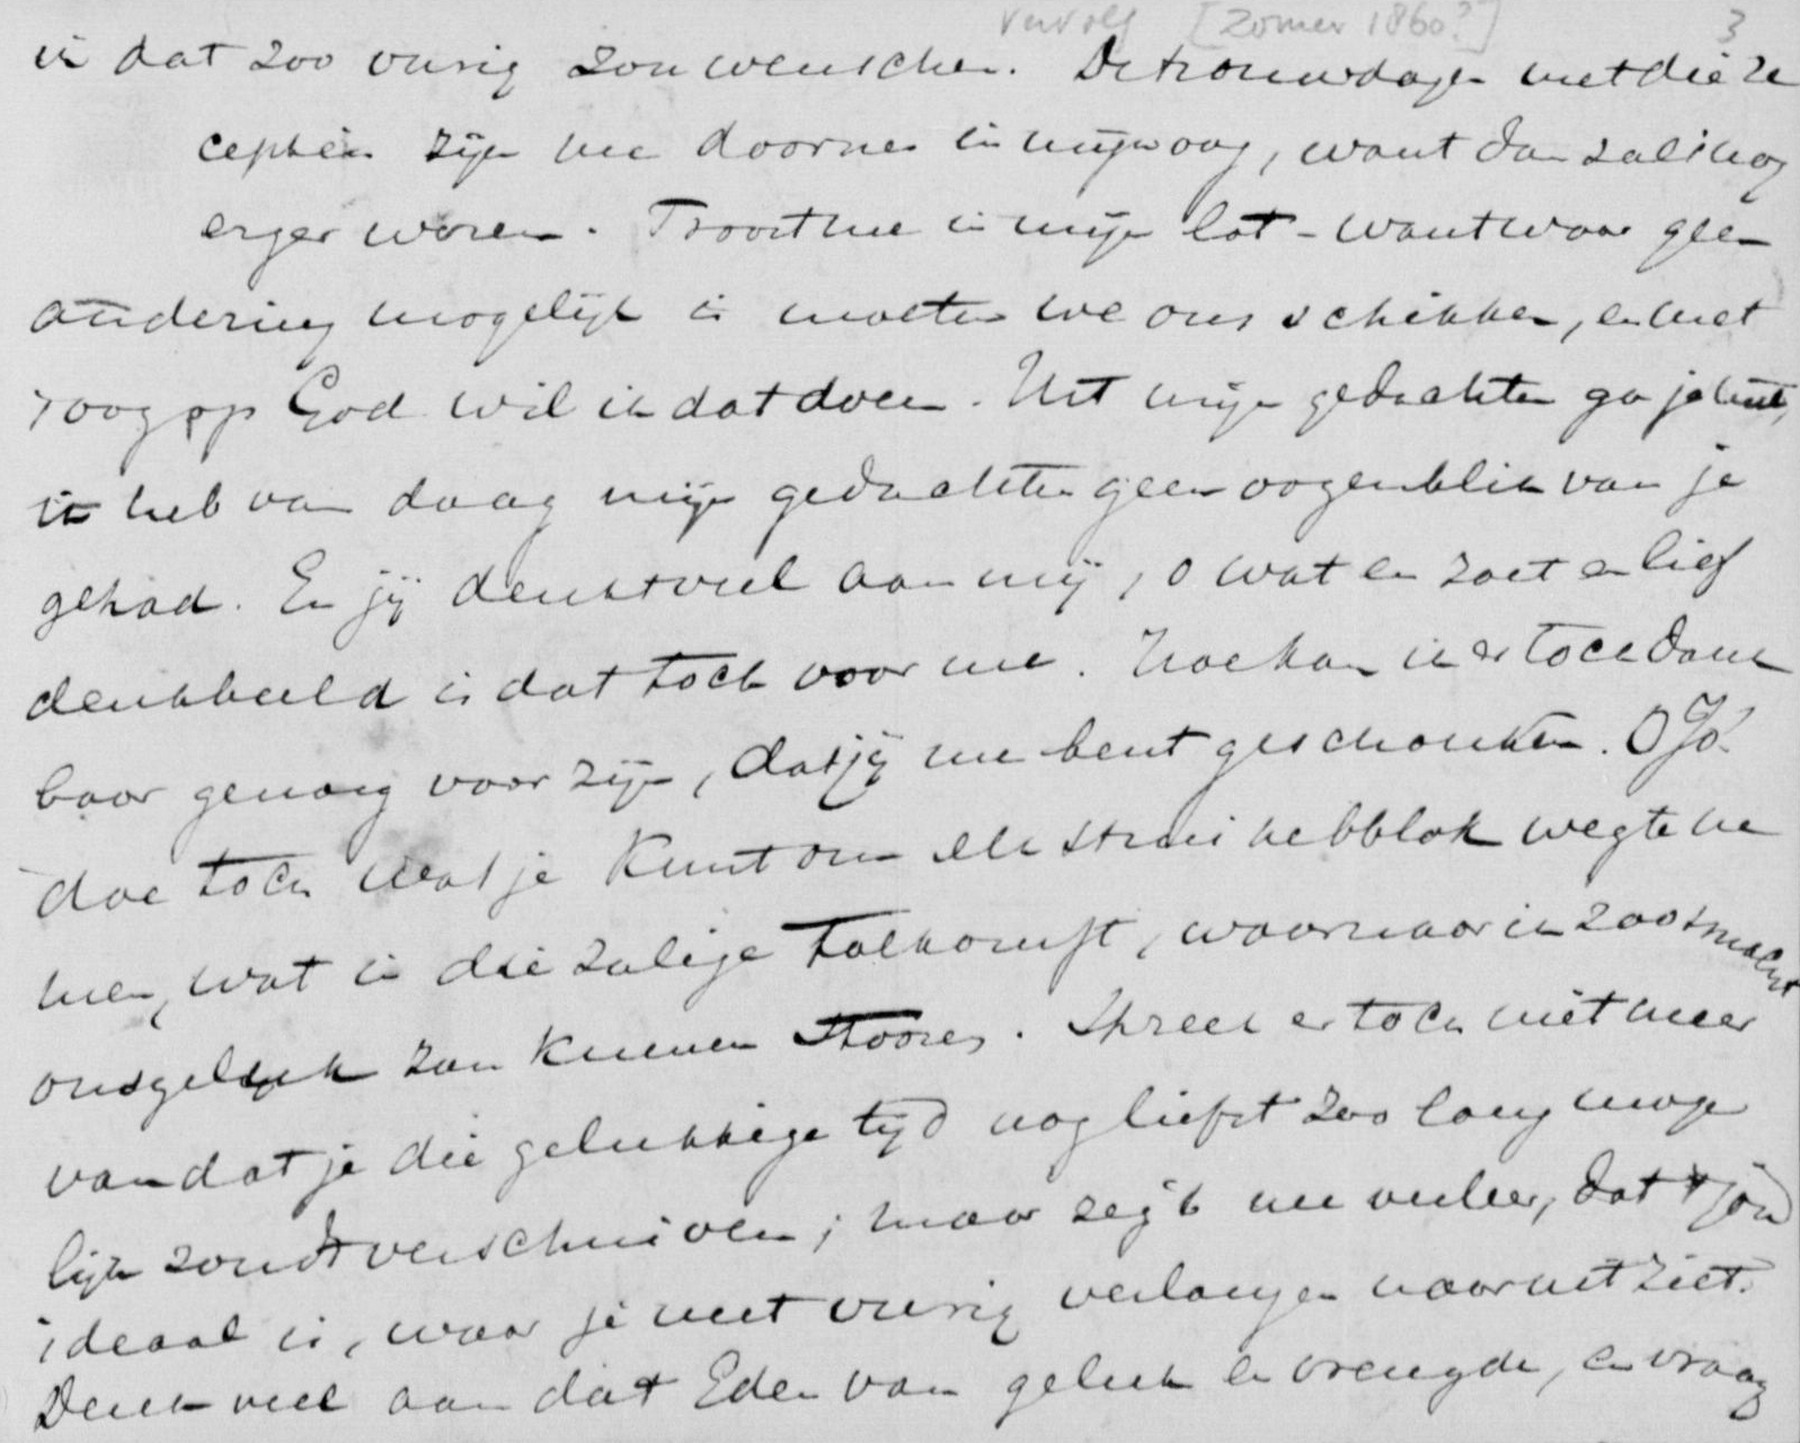 vervolg [Zomer 1860?] 3
ik dat zoo vurig zou wenschen. De trouwdagen met die re
cepties zijn me doornen in mijn oog, want dan zal ik nog
erger worden. Troost me in mijn lot - want waar geen
andering mogelijk is moeten we ons schikken, en met
't oog op God wil ik dat doen. Uit mijn gedachten ga je niet,
ik heb van daag mijn gedachten geen oogenblik van je
gehad. En jij denkt veel aan mij, o wat en zoet en lief
denkbeeld is dat toch voor me. Hoe kan ik er toch dank
baar genoeg voor zijn, dat jij me bent geschonken. O Jo
doe toch wat je kunt om elk struikelblok weg te ne
men, wat in die zalige toekomst, waarnaar ik zoo smacht
ons geluk zou kunnen stooren. Spreek er toch niet meer
van dat je die gelukkige tijd nog liefst zoo lang moge
lijk zoudt verschuiven; maar zeg 't me ulieer, dat 't jou
ideaal is, waar je met vurig verlangen naar uit ziet.
Denk veel aan dat Eden van geluk en vreugde, en vraag